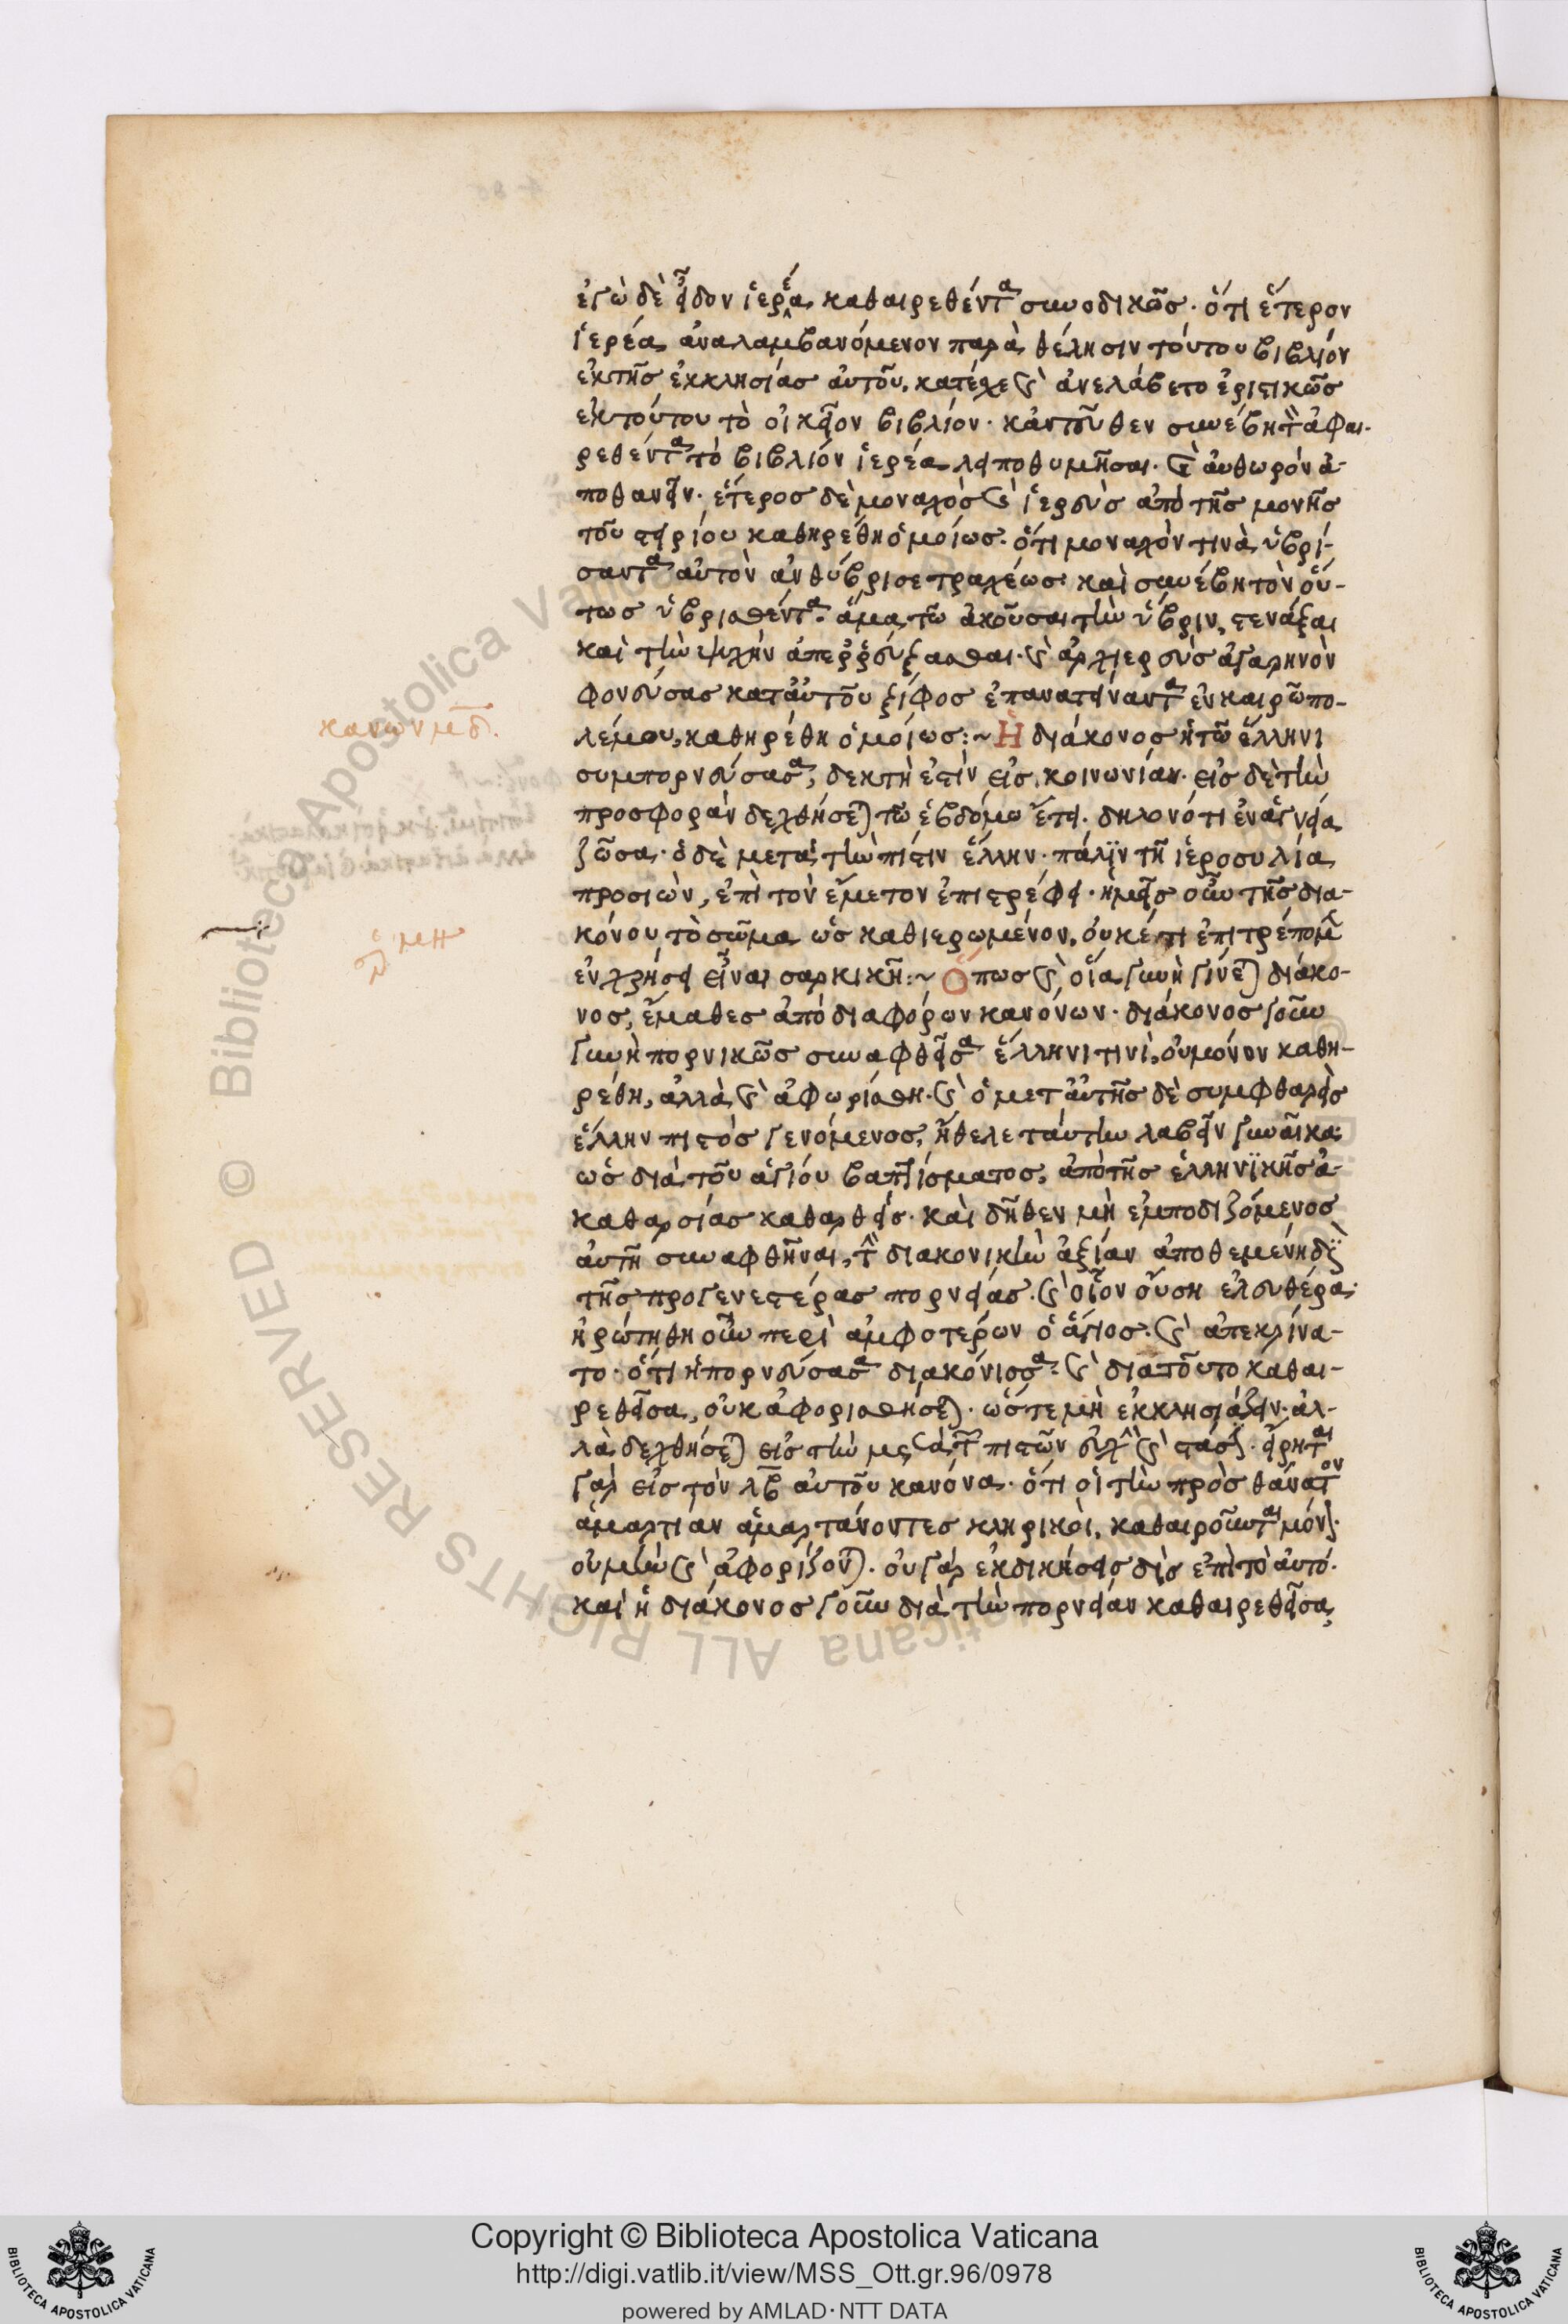 ἐγὼ δὲ εἶδον ἱερέα καθαιρεθέντα συνοδικῶς· ὅτι ἕτερον
ἱερέα ἀναλαμβανόμενον παρὰ θέλησιν τούτου βιβλίον
ἐκ τῆς ἐκκλησίας αὐτοῦ, κατέσχε καὶ ἀνελάβετο ἐριστικῶς
ἐκ τούτου τὸ οἰκεῖον βιβλίον· κἀντεῦθεν συνέβη τὸν ἀφαι-
ρεθέντα τὸ βιβλίον ἱερέα λειποθυμῆσαι· καὶ αὐθωρὸν ἀ-
ποθανεῖν· ἕτερος δὲ μοναχὸς καὶ ἱερεὺς ἀπὸ τῆς μονῆς
τοῦ στειρίου καθηρέθη ὁμοίως· ὅτι μοναχόν τινα ὑβρί-
σαντα αὐτὸν ἀνθύβρισε τραχέως· καὶ συνέβη τὸν οὕ-
τως ὑβρισθέντα ἅμα τῷ ἀκοῦσαι τὴν ὕβριν, στενάξαι
καὶ τὴν ψυχὴν ἀπερρεύξασθαι· καὶ ἀρχιερεὺς ἀγαρηνὸν
φονεύσας κατ αὐτοῦ ξίφος ἐπανατείναντα ἐν καιρῷ πο-
λέμου, καθηρέθη ὁμοίως:~ Ἡ διάκονος ἡ τῷ ἕλληνι
συμπορνεύσασα, δεκτὴ ἐστὶν εἰς κοινωνίαν· εἰς δὲ τὴν
προσφορὰν δεχθήσεται τῷ ἑβδόμῳ ἔτει· δηλονότι ἐν ἁγνείᾳ
ζῶσα· ὁ δὲ μετὰ τὴν πίστιν ἕλλην· πάλιν τῇ ἱεροσυλίᾳ
προσιὼν, ἐπὶ τὸν ἔμετον ἐπιστρέφει· ἡμεῖς οὖν τῆς δια-
κόνου τὸ σῶμα ὡς καθιερωμένον, οὐκέτι ἐπιτρέπομεν
ἐν χρήσει εἶναι σαρκικῇ:~ Ὅπως καὶ οἵα γυνὴ γίνεται διάκο-
νος, ἔμαθες ἀπὸ διαφόρων κανόνων· διάκονος γοῦν
γυνὴ πορνικῶς συναφθεῖσα ἕλληνι τινὶ, οὐ μόνον καθη-
ρέθη, ἀλλὰ καὶ ἀφωρίσθη· καὶ ὁ μετ αὐτῆς δὲ συμφθαρεὶς
ἕλλην πιστὸς γενόμενος, ἤθελε ταύτην λαβεῖν γυναῖκα·
ὡς διὰ τοῦ ἁγίου βαπτίσματος, ἀπὸ τῆς ἑλληνϊκῆς ἀ-
καθαρσίας καθαρθείς· καὶ δῆθεν μὴ ἐμποδιζόμενος
αὐτῇ συναφθῆναι, τὴν διακονικὴν ἀξίαν ἀποθεμένη διὰ
τῆς προγενεστέρας πορνείας· καὶ οἷον οὔσῃ ἐλευθέρα·
ἠρώτηθη οὖν περὶ ἀμφοτέρων ὁ ἅγιος· καὶ ἀπεκρίνα-
το· ὅτι ἡ πορνεύσασα διακόνισσα καὶ διατοῦτο καθαι-
ρεθεῖσα, οὐκ ἀφορισθήσεται· ὥστε μὴ ἐκκλησιάζειν· ἀλ-
λὰ δεχθήσεται εἰς τὴν μετὰ τῶν πιστῶν εὐχὴν καὶ στάσιν· εἴρηται
γὰρ εἰς τὸν λβ αὐτοῦ κανόνα· ὅτι οἱ τὴν πρὸς θάνατον
ἁμαρτίαν ἁμαρτάνοντες κληρικοὶ, καθαιροῦνται μόνον·
οὐ μὴν καὶ ἀφορίζονται· οὐ γὰρ ἐκδικήσεις δὶς ἐπὶ τὸ αὐτό·
καὶ ἡ διάκονος γοῦν διὰ τὴν πορνείαν καθαιρεθεῖσα
κανὼν μδ.
Copyright © Biblioteca Apostolica Vaticana
http://digi.vatlib.it/view/MSS_Ott.gr.96/0978
powered by AMLAD·NTT DATA
BIBLIOTECA APOSTOLICA VATICANA
BIBLIOTECA APOSTOLICA VATICANA